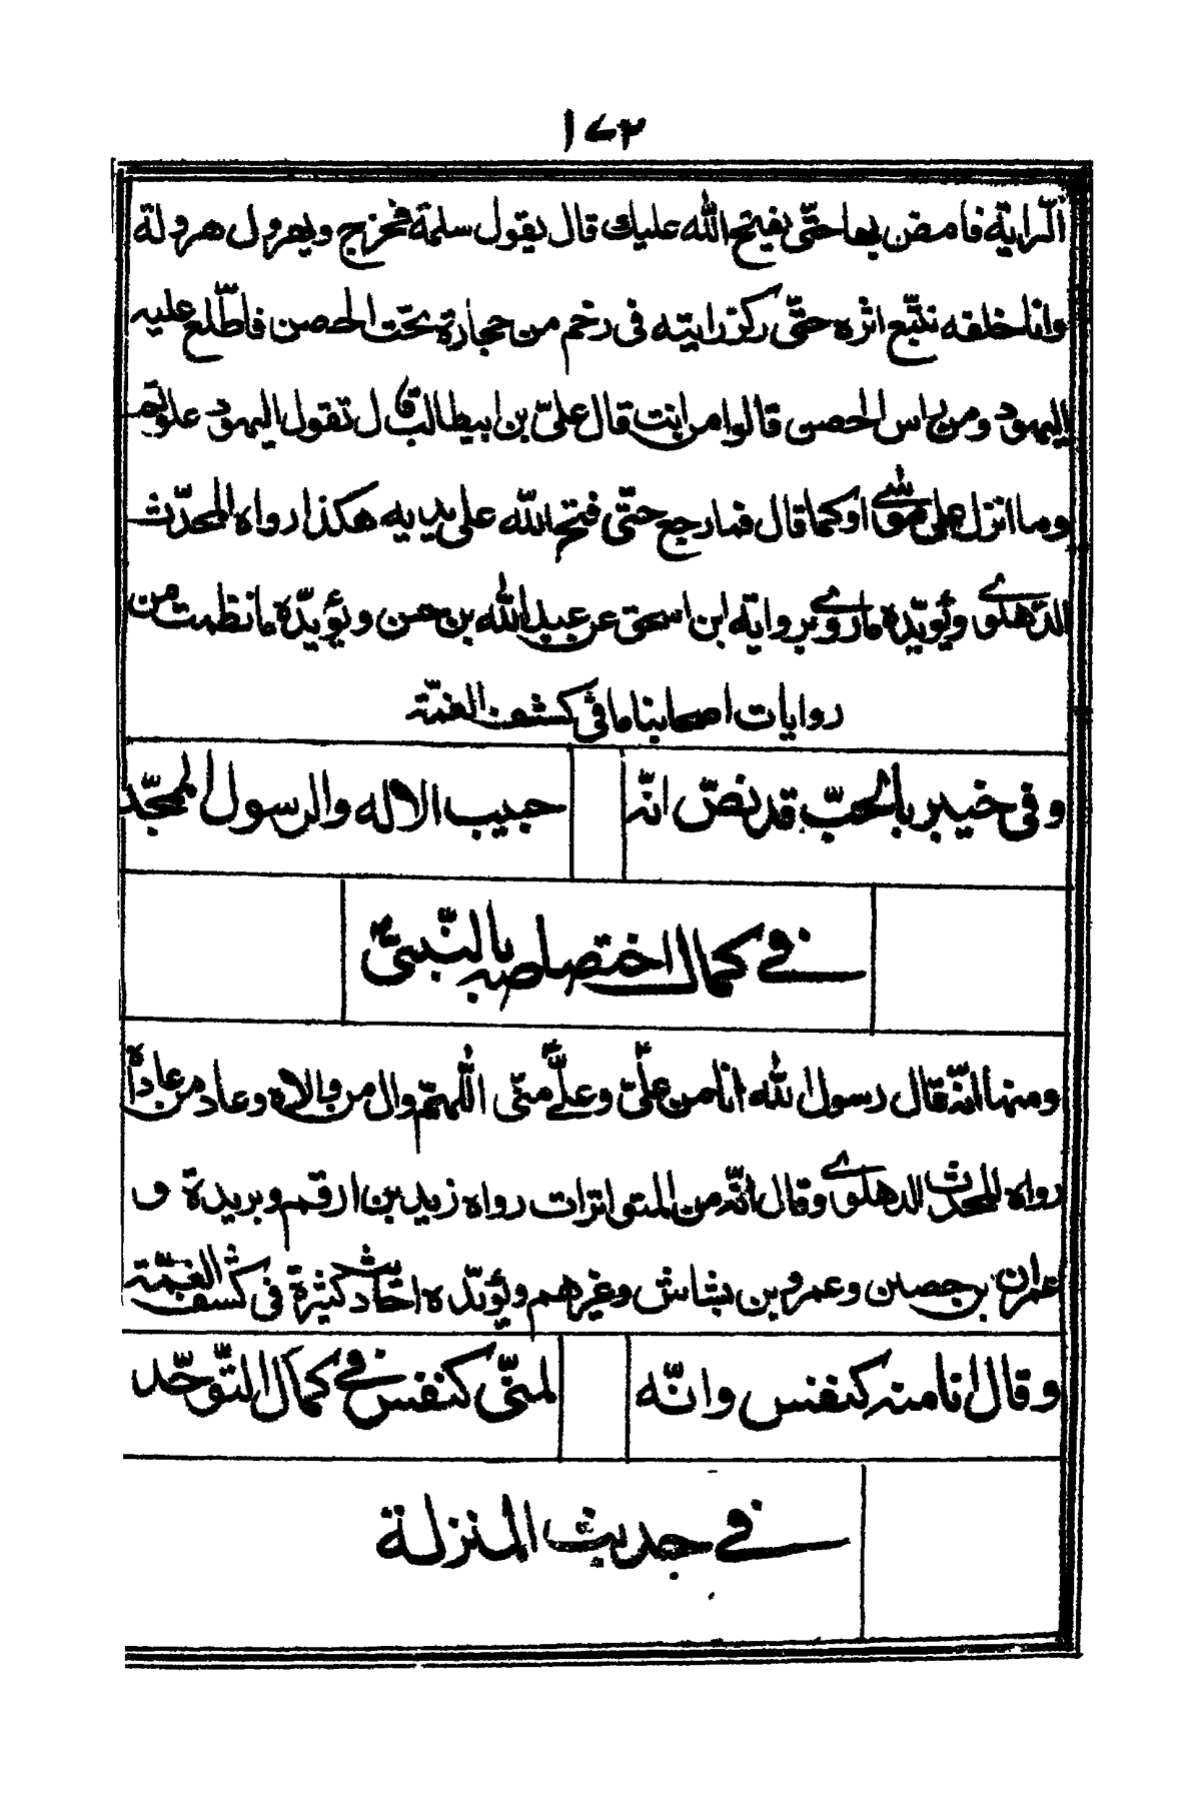 ١٧٢
الرّاية فامض بها حتّى يفتح الله عليك قال يقول سلمة فخرج ويهرول هرولة
وانا خلفه نتّبع اثره حتّى ركز رايته فى رخم من حجارة تحت الحصن فاطّلع عليه
اليهود ومن براس الحصن قالوا من انت قال علىّ بن ابيطالب قال تقول اليهود علوتم
وما انزل على موسى او كما قال فما رجع حتّى فتح الله على يديه هكذا رواه المحدّث
الدّهلوى ويؤيّده ماروى برواية ابن اسحق عن عبد الله بن حسن ويؤيّده ما نظمت من
روايات اصحابنا ما فى كشف الغمّة
وفى خيبر بالحبّ قد نصّ انّه حبيب الاله والرسول الممجّد
فى كمال اختصاصه بالنّبىّ
ومنها انّه قال رسول الله انا من علىّ وعلىّ منّى اللّهمّ وال من والاه وعاد من عاداه
رواه المحدث الدهلوى وقال انّه من المتواترات رواه زيد بن ارقم وبريدة و
عمران بن حصين وعمرو بن شاش وغيرهم ويؤيّده احاديث كثيرة فى كشف الغمّة
وقال انا منه كنفس وانّه لمنّى كنفس فى كمال التّوحّد
فى حديث المنزلة